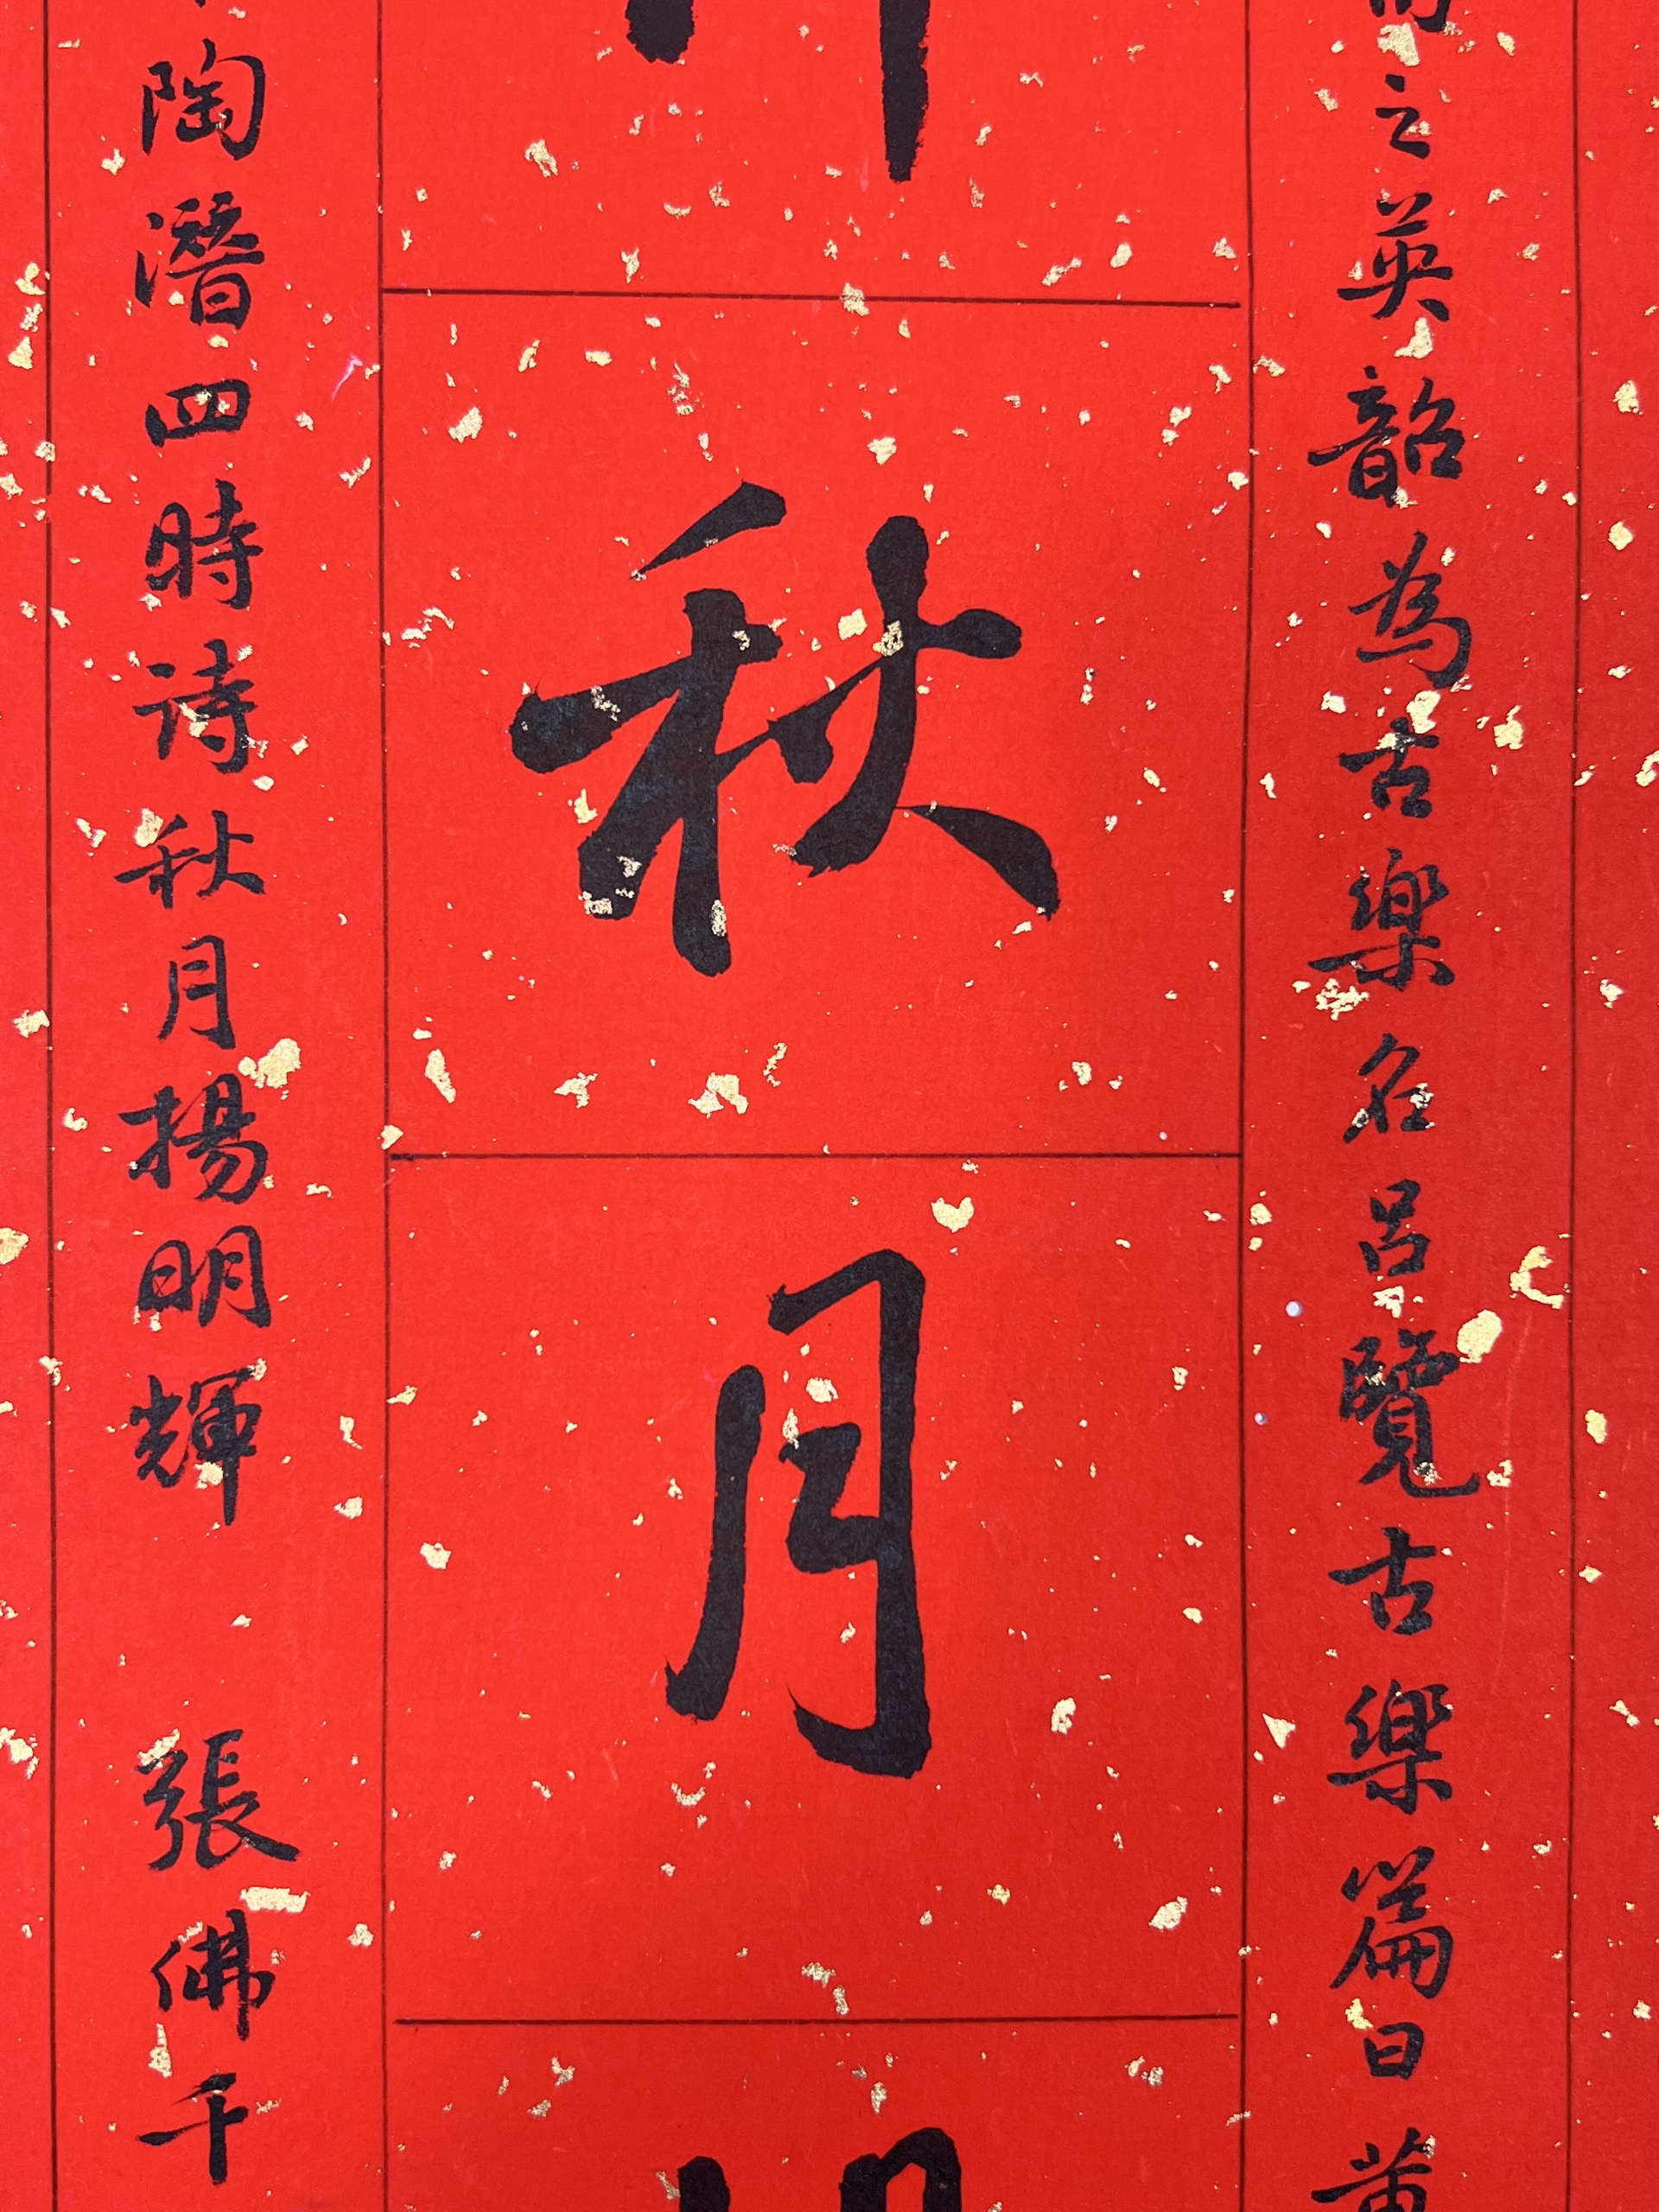 之英韶為古樂名呂覽古樂篇曰黃
秋月
陶潛四時诗秋月揚明輝 張佛千